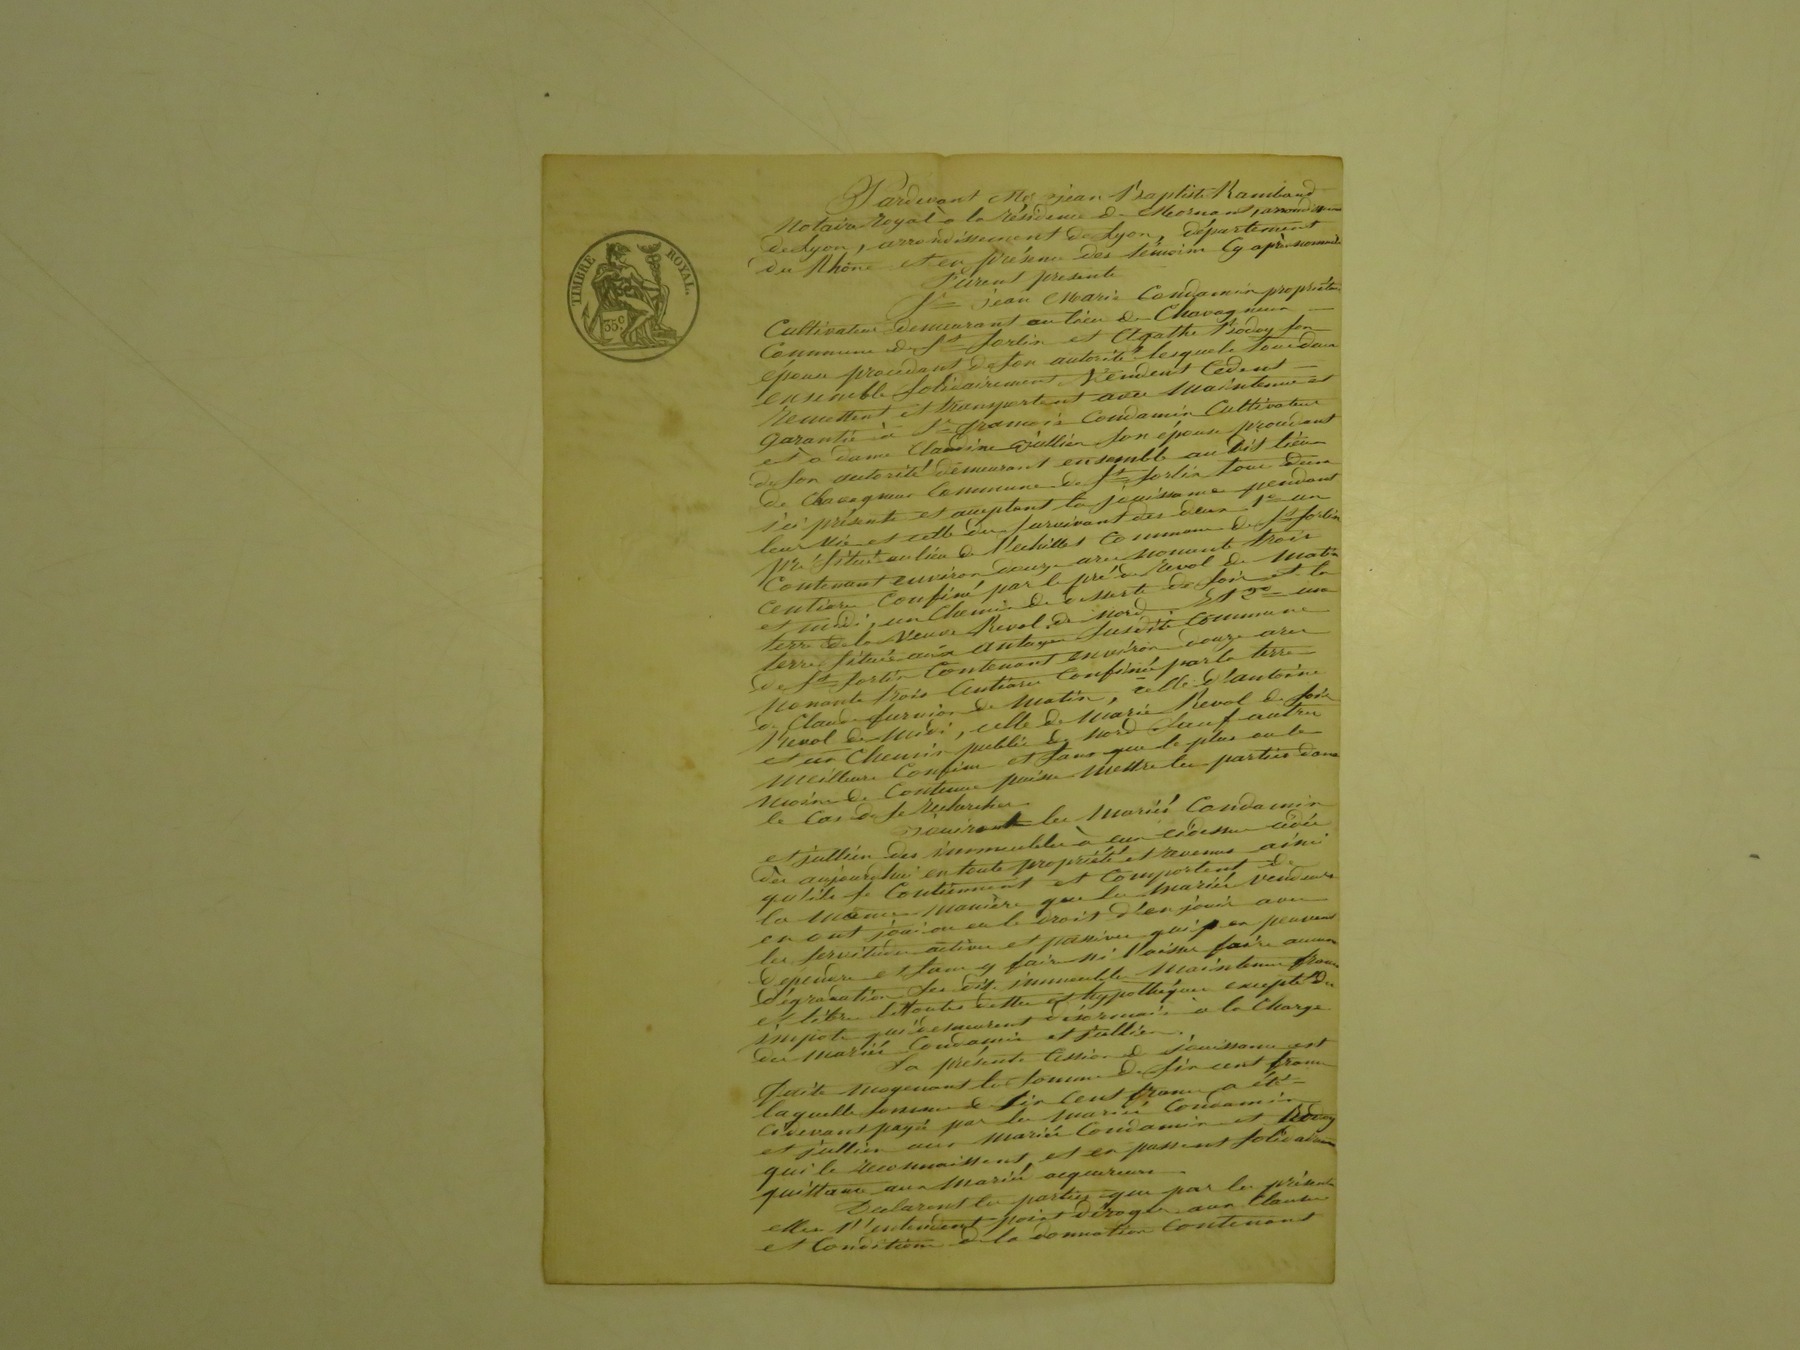 TIMBRE ROYAL.
35 c
Pardevant Me jean Baptiste Rambaud
Notaire Royal à la résidence de Mornant, arrondissement
de Lyon, arrondissement de Lyon, département
du Rhône et en présence des témoins Cy après nommés
furent présents
Sr jean Marie Condamin propriétaire
Cultivateur demeurant au lieu de Chavagneux
Commune de St Sorlin et Agathe Bodoy son
épouse procédant de son autorité lesquels tous deux
ensemble solidairement Vendent Cèdent
Remettent et transportent avec Maintenue et
garantie à Sr françois Condamin Cultivateur
et à dame Claudine jullien son épouse procédant
de son autorité demeurant ensemble au dit lieu
de Chavagneux Commune de St Sorlin tous deux
ici présents et acceptant la jouissance pendant
leur vie et celle du survivant des deux 1o un
pré situé au lieu de Commune de St Sorlin
Contenant environ douze ares nonante trois
centiares Confiné par le pré de Revol de Matin
et midi, un chemin de desserte de soir et la
terre de la Veuve Revol de Nord. Et 2o une
terre située aux susdite Commune
de St Sorlin Contenant environ douze ares
Nonante trois Centiares Confinée par la terre
de Claude furnion de Matin, celle d'antoine
Revol de Midi, celle de Marie Revol de soir
et un Chemin public de Nord sauf autres
Meilleurs Confins et sans que le plus ou le
moins de Contenue puisse mettre les parties dans
le Cas de se rechercher.
jouiront les Mariés Condamin
et jullien des immeubles à eux cidessus cédés
dès aujourd'hui en toute propriété et avenus ainsi
qu'ils se Contiennent et Comportent de
la même manière que les Mariés Vendeurs
en ont joui ou eu le droit d'en jouir avec
les servitudes actives et passives qui en peuvent
dépendre et sans y faire ni laisser faire aucune
dégradation Les dits immeubles Maintenus francs
et libres de toutes dettes et hypothèques excepté des
impots qui demeurent désormais à la Charge
des Mariés Condamin et jullien.
La présente Cession de jouissance est
faite moyennant la somme de six cent francs
laquelle somme de six Cent francs a été
cidevant payée par les Mariés Condamin
et jullien aux Mariés Condamin et Bodoy
qui le reconnaissent, et en passent solidairement
quittance aux Mariés acquéreurs.
Déclarent les parties que par les présentes
elles N'entendent point déroger aux Clauses
et Conditions de la donnation Contenant